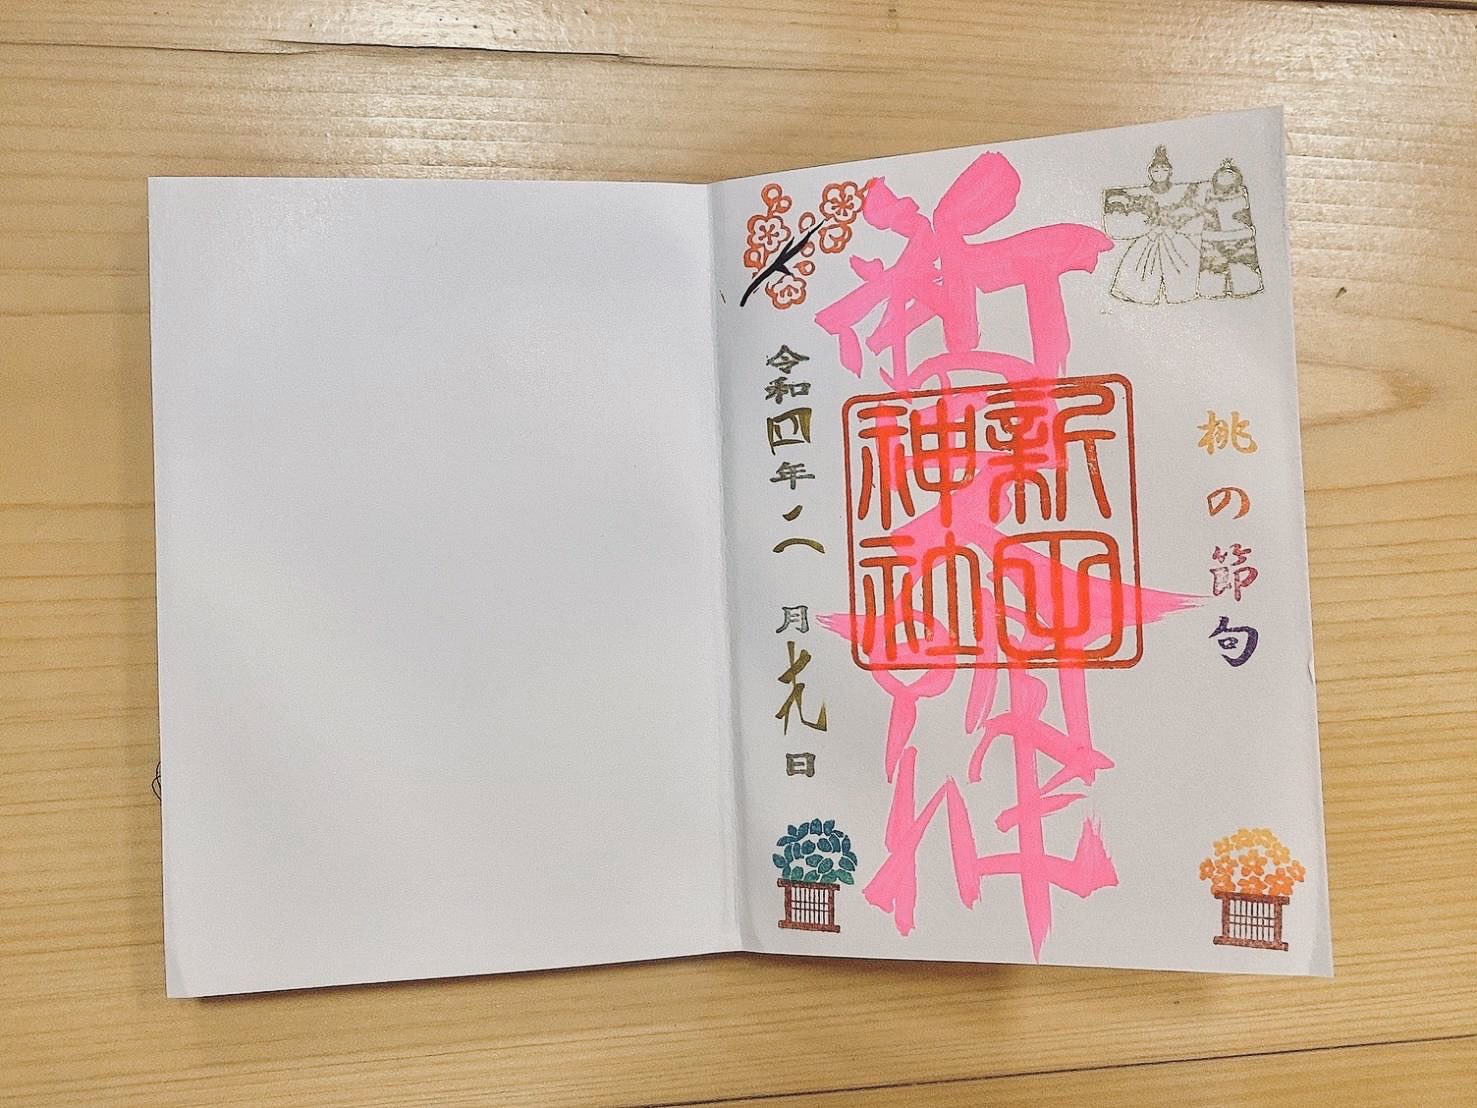 桃の節句
新田大明神
新田
神社
令和四年二月十九日